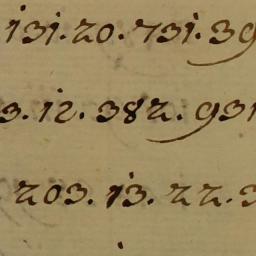 131.20.731.39
3.12.382.931
203.13.22.3